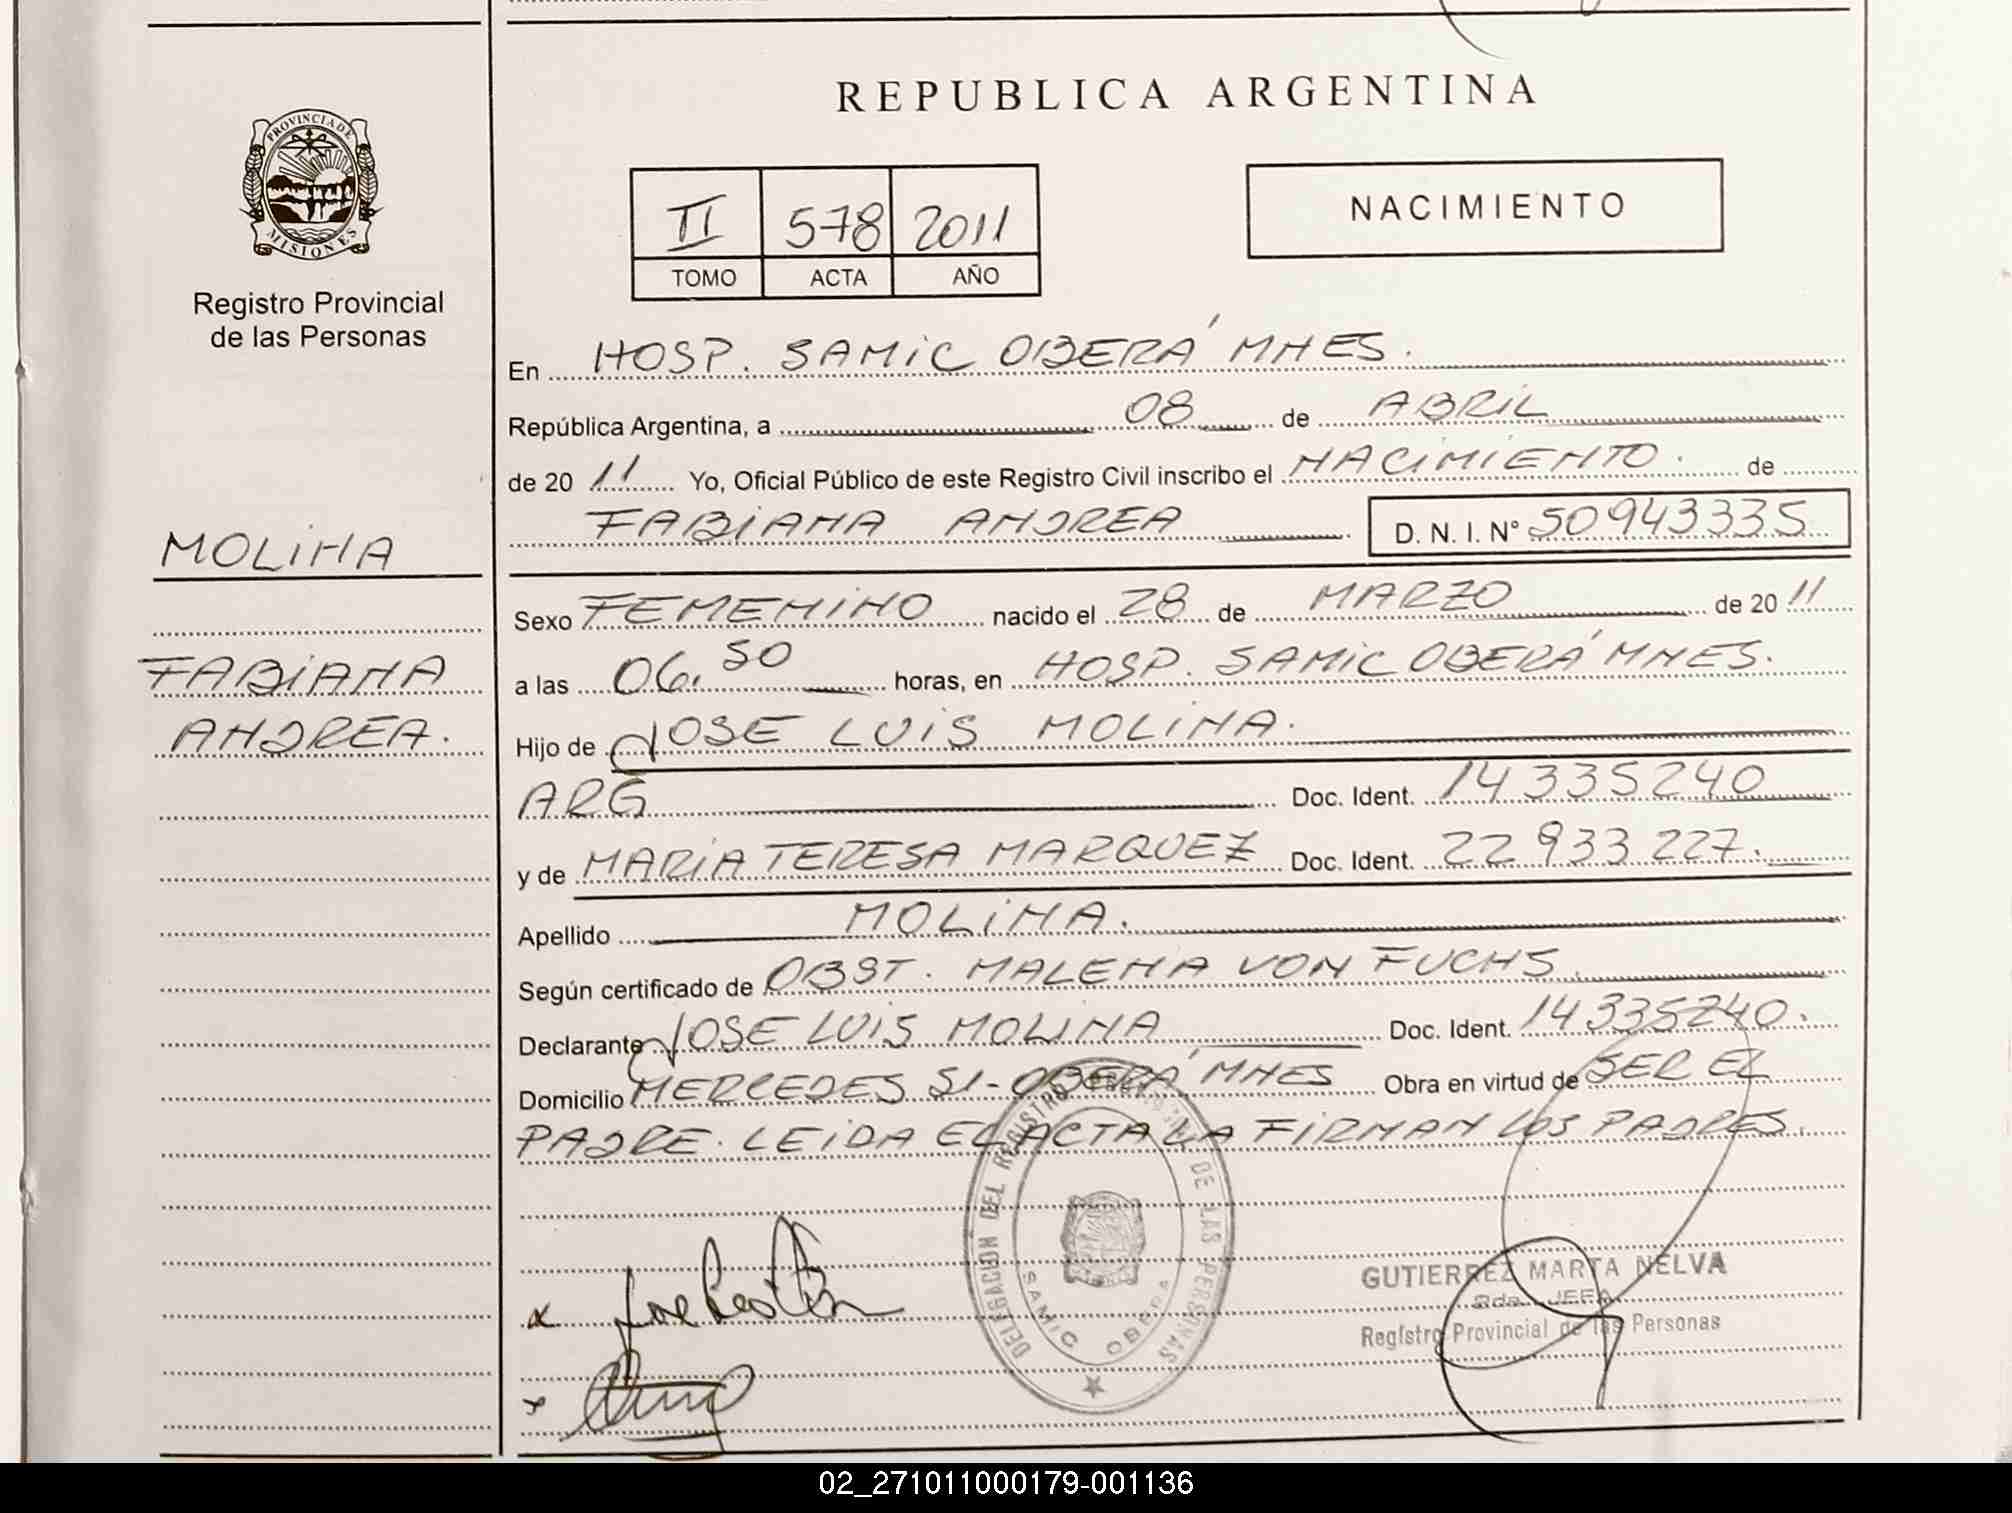 REPUBLICA ARGENTINA
PROVINCIA DE
MISIONES
Registro Provincial
de las Personas
II 578 2011
TOMO ACTA AÑO
NACIMIENTO
En HOSP. SAMIC OBERÁ MNES.
República Argentina, a 08 de ABRIL
de 20 11 Yo, Oficial Público de este Registro Civil inscribo el NACIMIENTO. de
FABIANA ANDREA D. N. I. N° 50943335
MOLINA
FABIANA
ANDREA.
Sexo FEMENINO nacido el 28 de MARZO de 20 11
a las 06.50 horas, en HOSP. SAMIC OBERÁ MNES.
Hijo de JOSE LUIS MOLINA.
ARG Doc. Ident. 14335240
y de MARIA TERESA MARQUEZ Doc. Ident. 22933227.
Apellido MOLINA.
Según certificado de OBST. MALENA VON FUCHS.
Declarante JOSE LUIS MOLINA Doc. Ident. 14335240.
Domicilio MERCEDES S1-OBERÁ MNES Obra en virtud de SER EL
PADRE. LEIDA EL ACTA LA FIRMAN LOS PADRES.
DELEGACION DEL REGISTRO PROVINCIAL DE LAS PERSONAS
SAMIC OBERA
GUTIERREZ MARTA NELVA
JEFA
Registro Provincial de las Personas
02_271011000179-001136